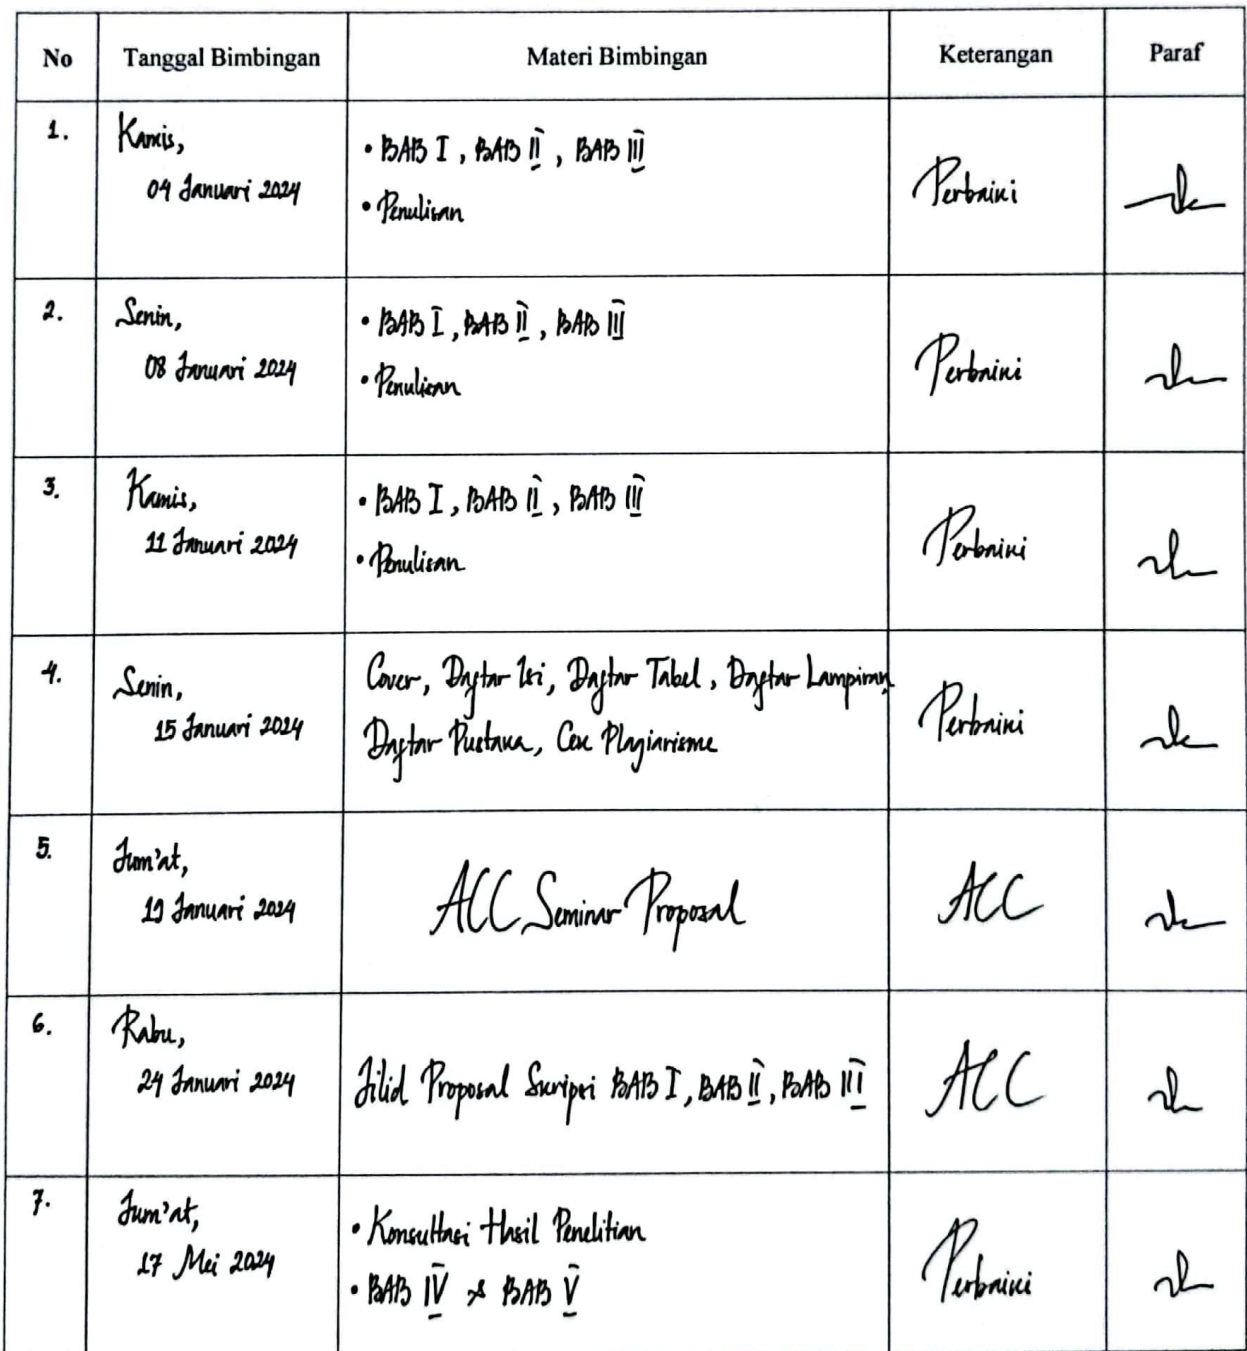 No Tanggal Bimbingan Materi Bimbingan Keterangan Paraf
1. Kamis,
04 Januari 2024
• BAB I, BAB II, BAB III
• Penulisan
Perbaiki
2. Senin,
08 Januari 2024
• BAB I, BAB II, BAB III
• Penulisan
Perbaiki
3. Kamis,
11 Januari 2024
• BAB I, BAB II, BAB III
• Penulisan
Perbaiki
4. Senin,
15 Januari 2024
Cover, Daftar Isi, Daftar Tabel, Daftar Lampiran,
Daftar Pustaka, Cek Plagiarisme
Perbaiki
5. Jum'at,
19 Januari 2024
ACC Seminar Proposal
ACC
6. Rabu,
24 Januari 2024
Jilid Proposal Skripsi BAB I, BAB II, BAB III
ACC
7. Jum'at,
17 Mei 2024
• Konsultasi Hasil Penelitian
• BAB IV & BAB V
Perbaiki